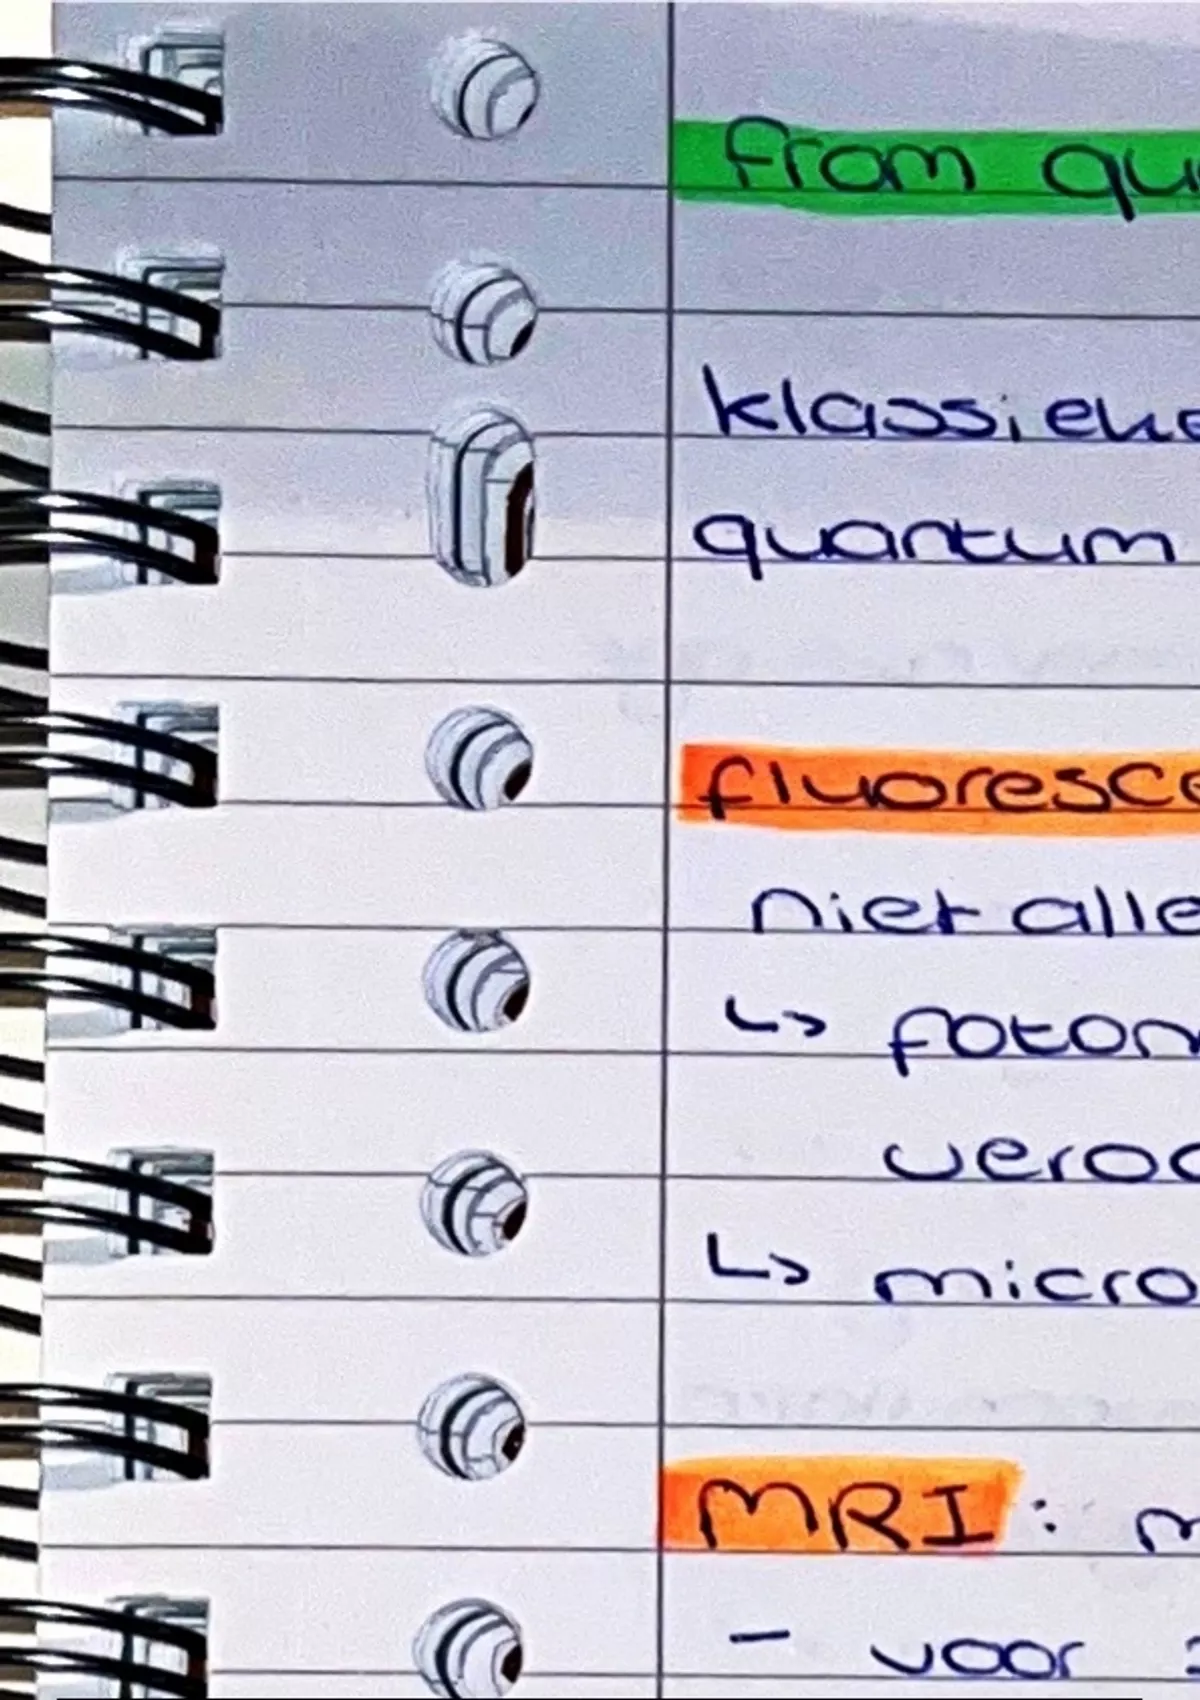 from qu
klassieke
quantum
fluoresce
niet alle
↳ foton
veroo
↳ micro
MRI : m
- voor